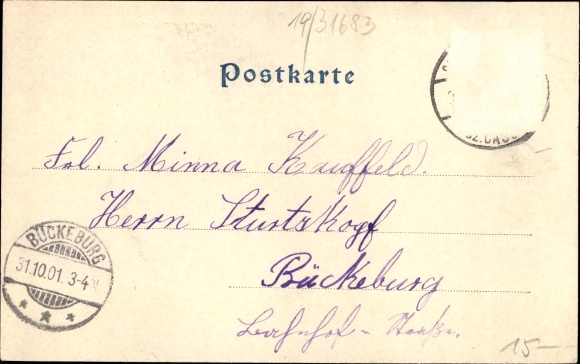 19/31683
Postkarte
BZ. CASS
Frl. Minna Kuffeld.
Herrn Sturtzkopf
Bückeburg
Bahnhof-Straße.
BÜCKEBURG
31.10.01. 3-4 N
15-